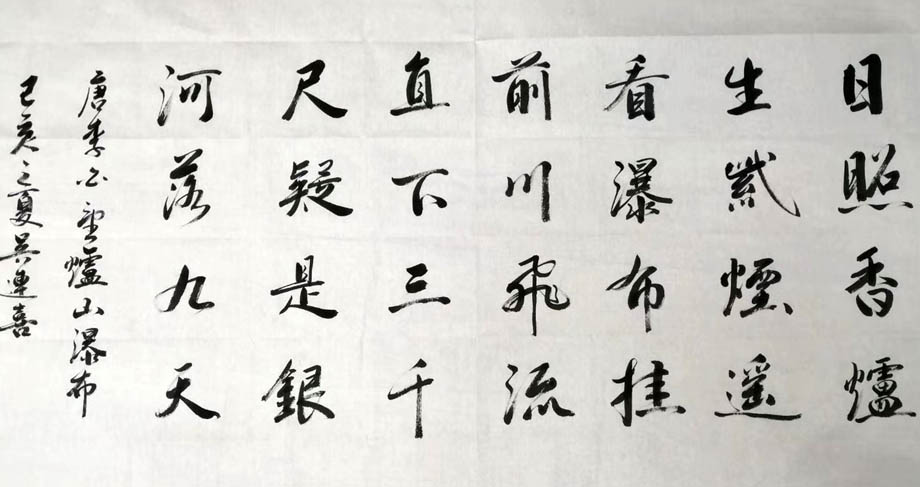 日照香爐
生紫煙遥
看瀑布挂
前川飛流
直下三千
尺疑是銀
河落九天
唐李白望爐山瀑布
己亥之夏吴連喜